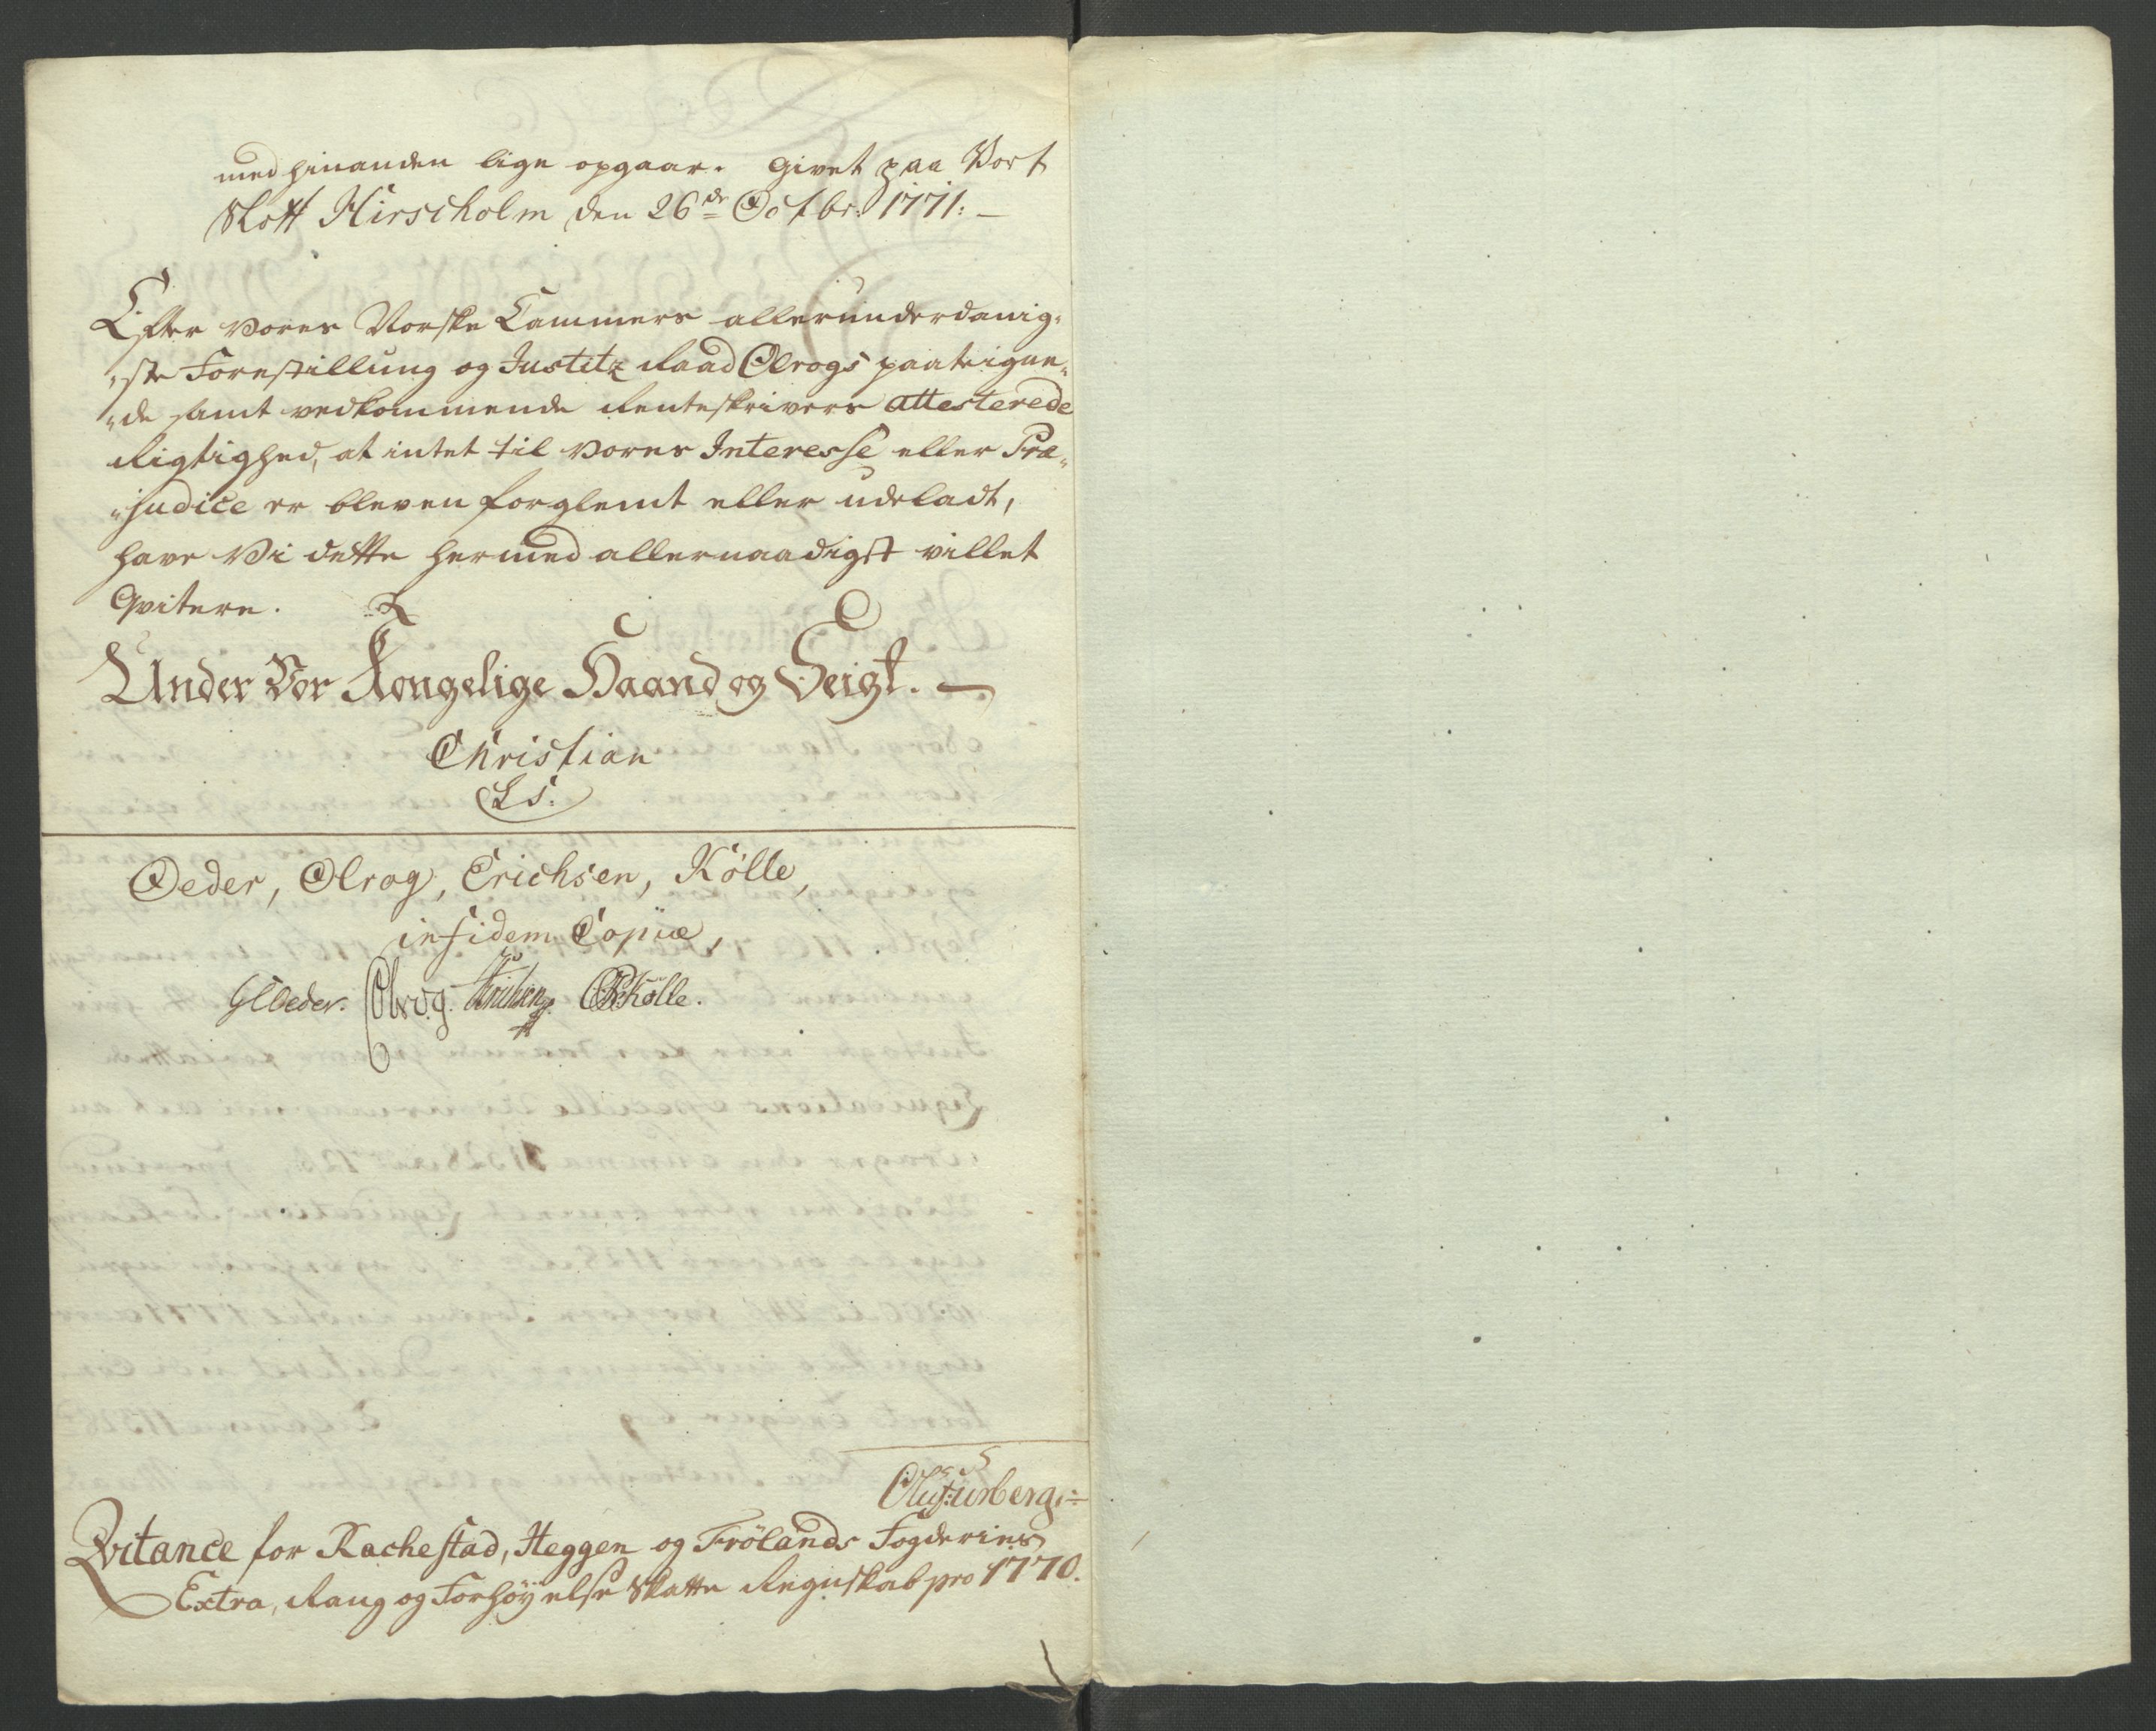 med hinanden lige opgaar. Givet paa Vort
Slott Hirscholm den 26de Octbr: 1771:
Efter Vores Norske Cammers allerunderdanig-
ste Forestilling og Justitz Raad Olrogs paateigne-
de samt vedkommende Renteskrivers attesterede
Rigtighed, at intet til Vores Interesse eller Præ-
judice er bleven forglemt eller udeladt,
have Vi dette hermed allernaadigst villet
Qvitere.
Under Vor Kongelige Haand og Seigl.
Christian
(LS.)
Oeder, Olrog, Erichsen, Kölle,
in fidem Copiæ,
GCOeder. Olrog. Erichsen. Kölle.
Qvitance for Rachestad, Heggen og Frölands Fogderies
Extra, Rang og Forhöyelse Skatte Regnskab pro 1770.